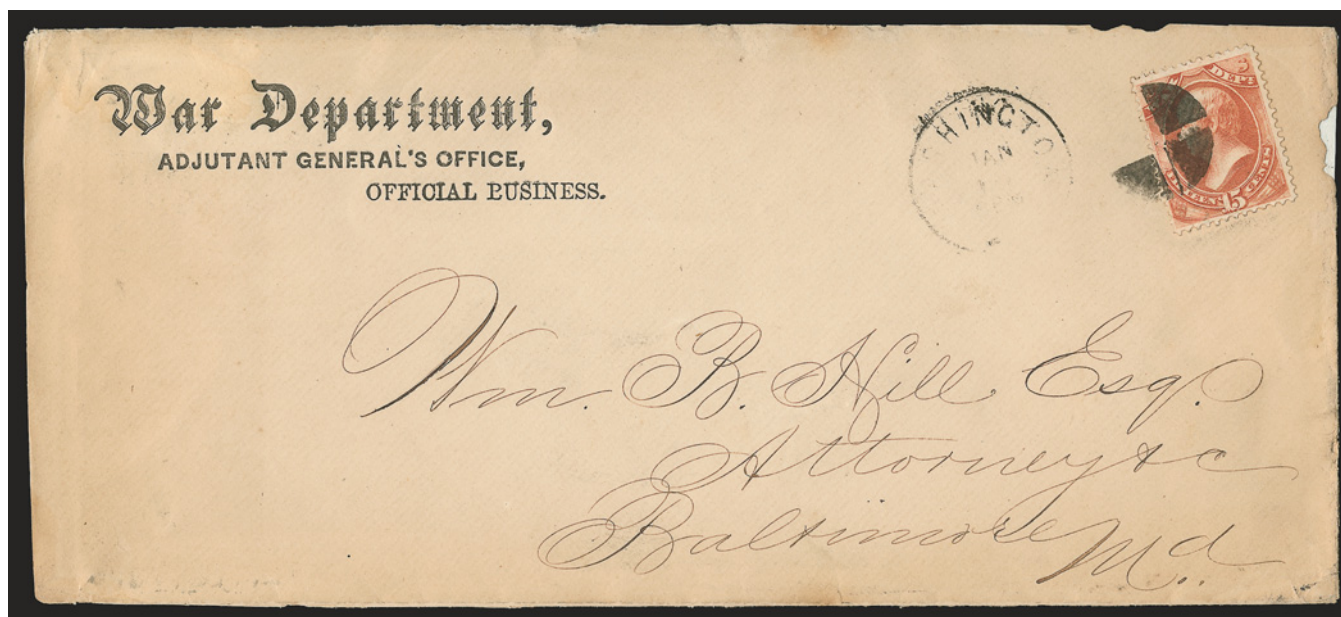 War Department,
ADJUTANT GENERAL'S OFFICE,
OFFICIAL BUSINESS.
HINGTO
JAN
DEPT.
15
CENTS
Wm. B. Hill Esq.
Attorney &c
Baltimore Md.